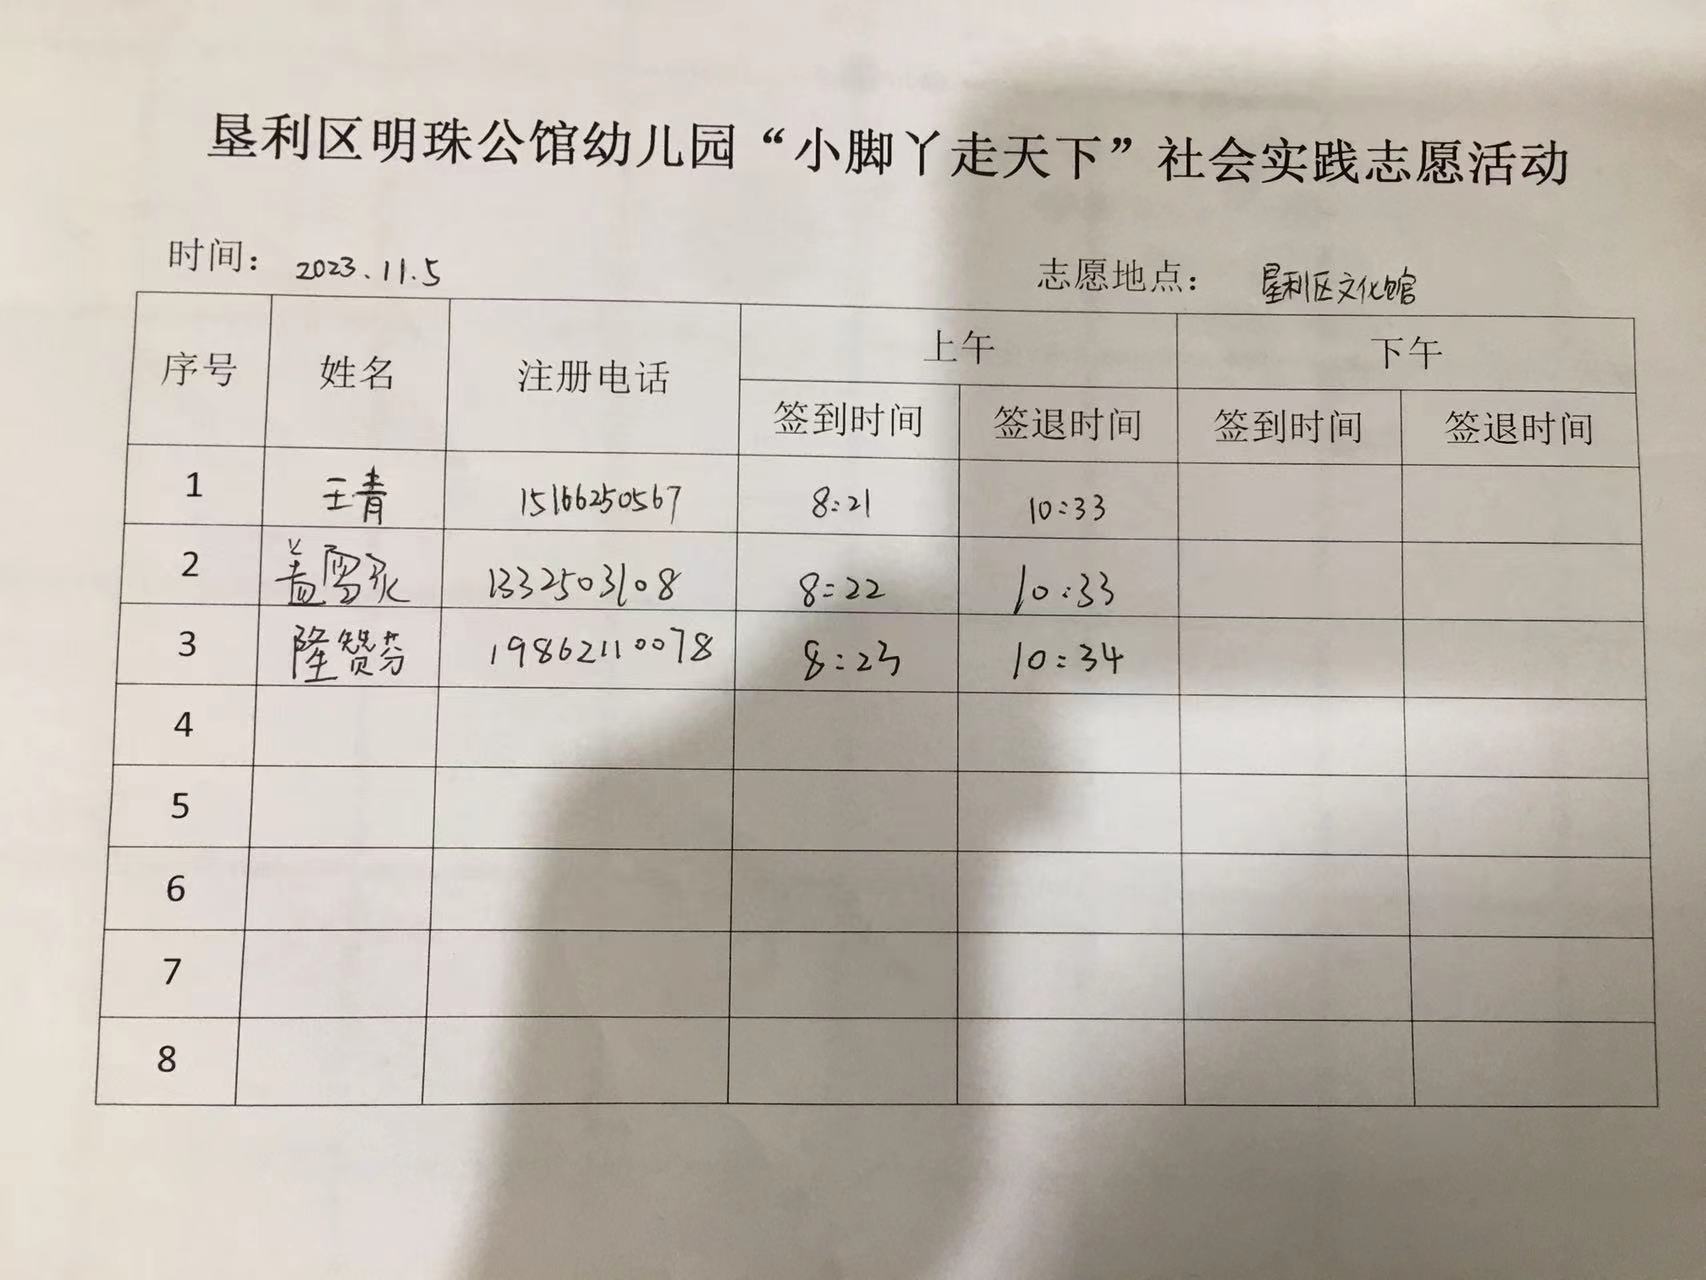 垦利区明珠公馆幼儿园“小脚丫走天下”社会实践志愿活动
时间： 2023.11.5 志愿地点： 垦利区文化馆
序号 姓名 注册电话 上午 下午
签到时间 签退时间 签到时间 签退时间
1 王青 15166250567 8:21 10:33
2 盖雪 1332503108 8:22 10:33
3 隆赞芬 19862110078 8:23 10:34
4
5
6
7
8